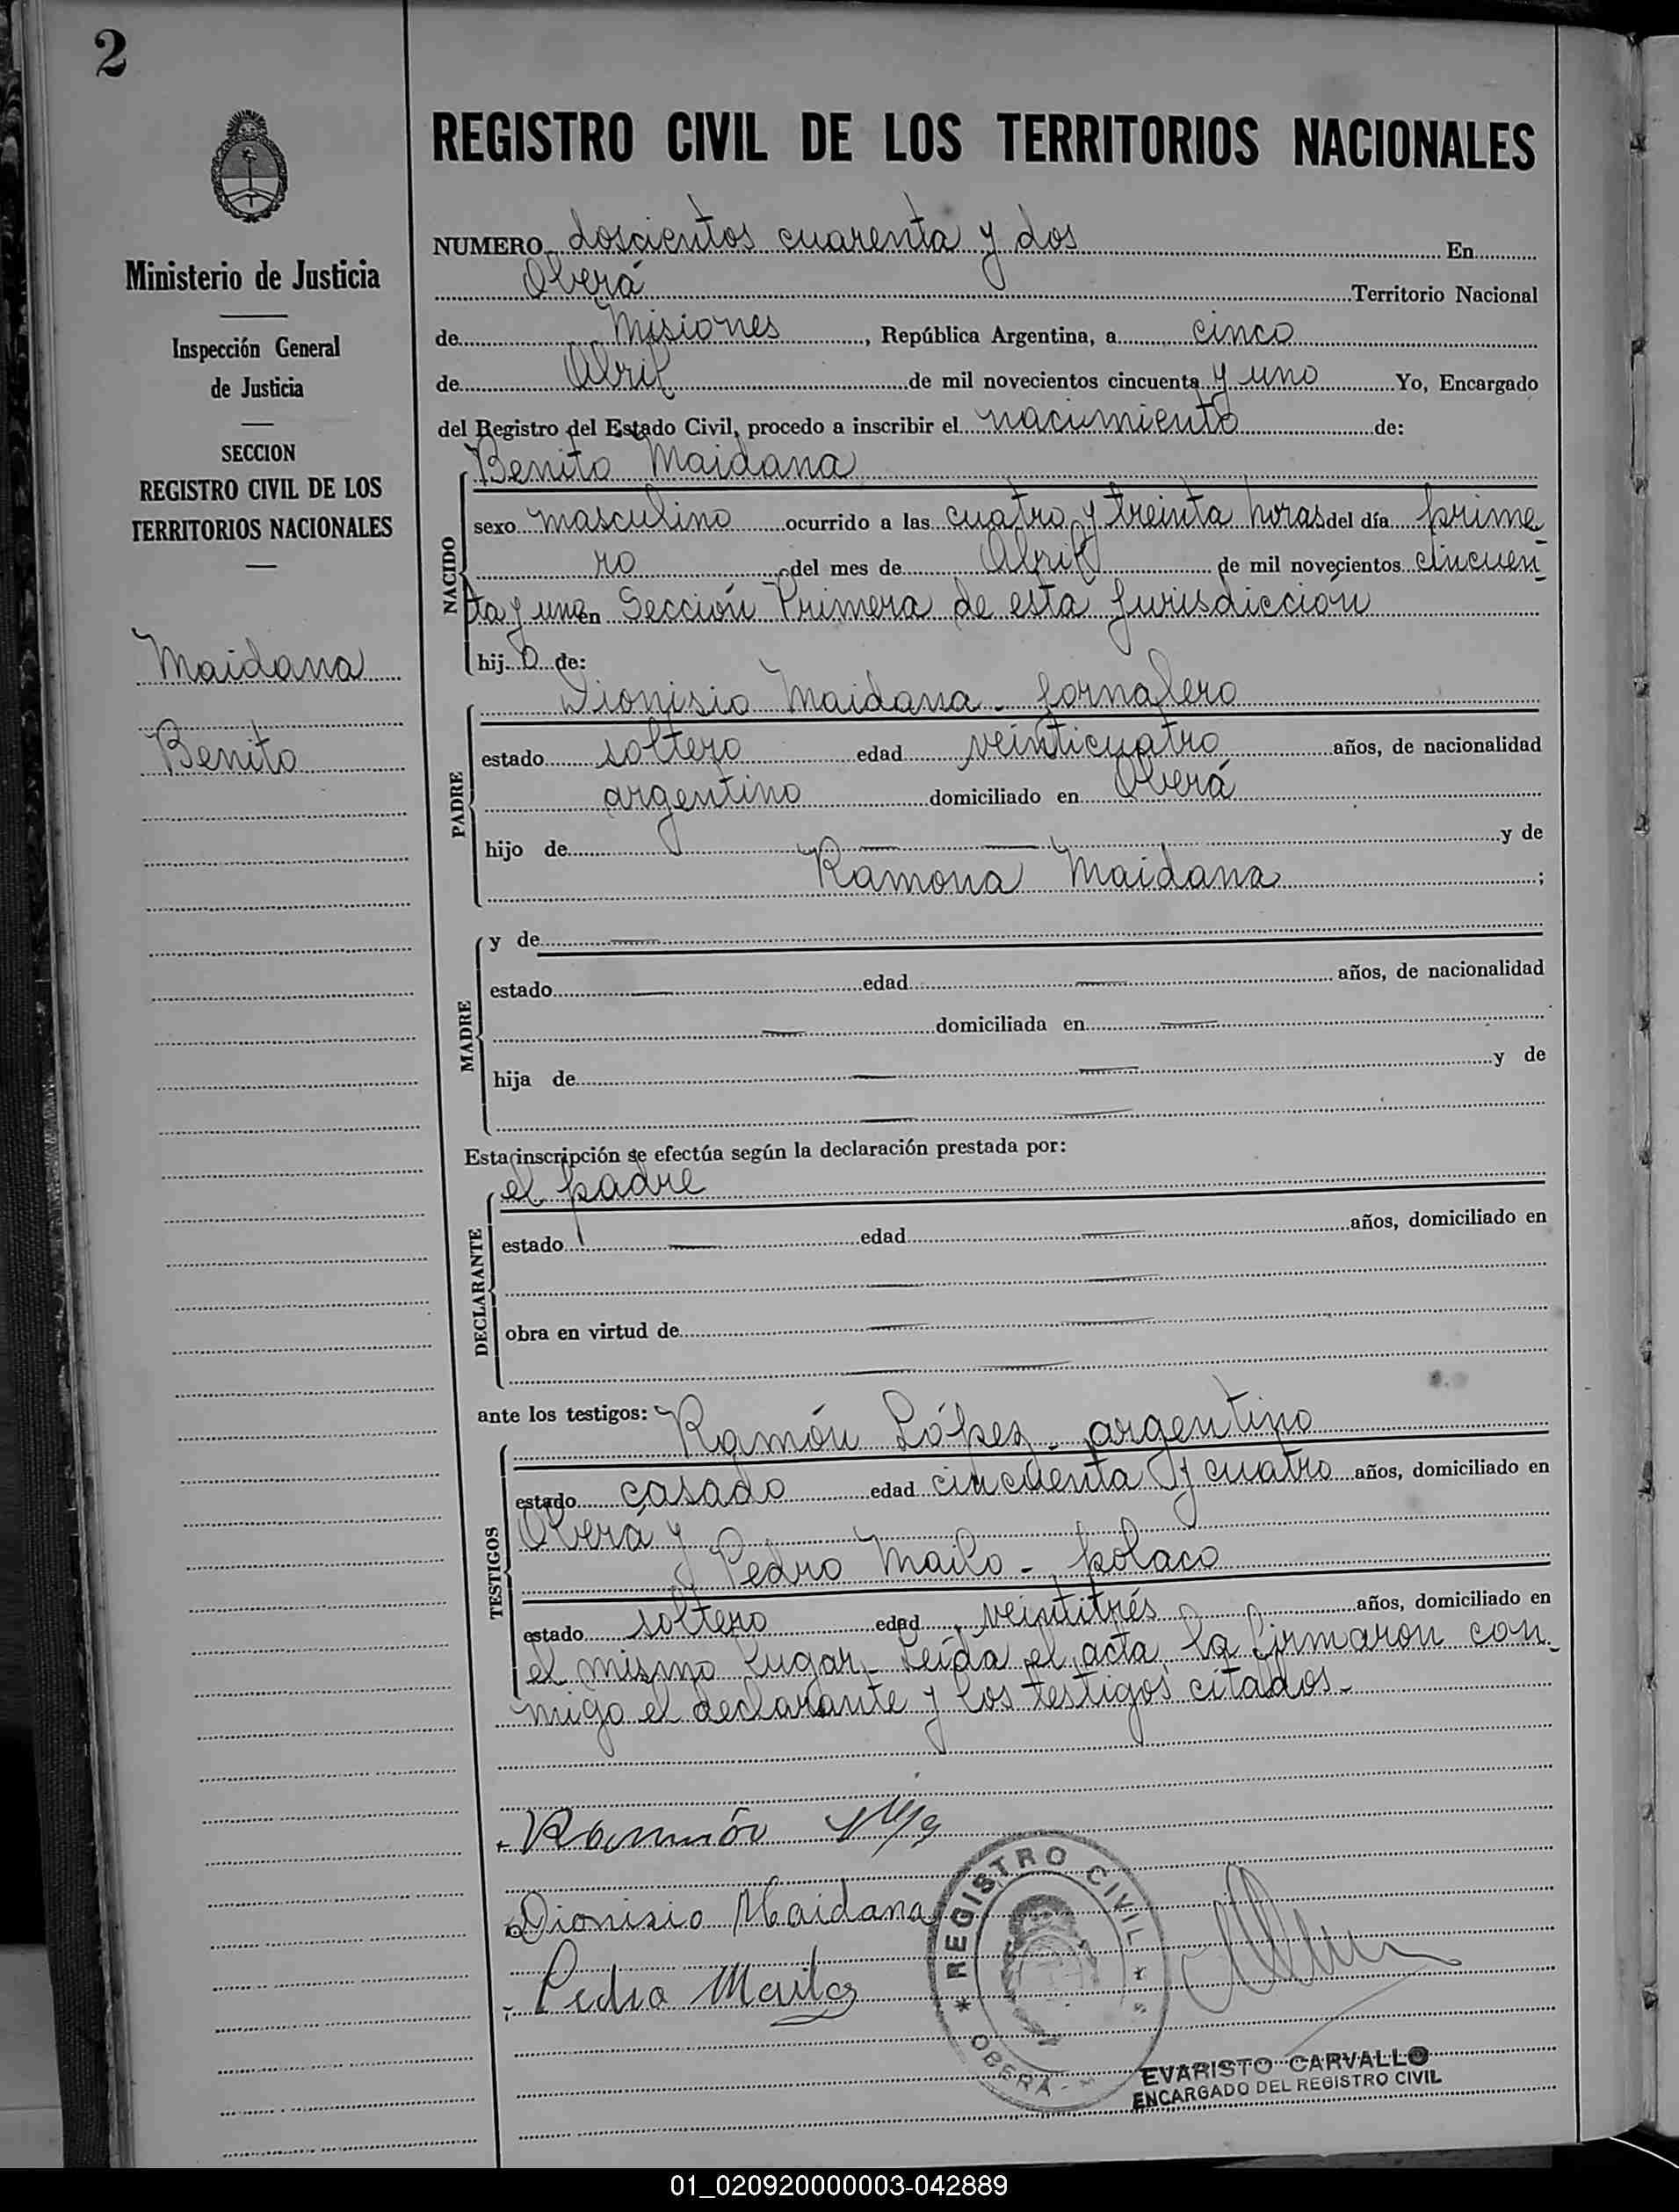 2
REGISTRO CIVIL DE LOS TERRITORIOS NACIONALES
Ministerio de Justicia
Inspección General
de Justicia
SECCION
REGISTRO CIVIL DE LOS
TERRITORIOS NACIONALES
Maidana
Benito
NUMERO doscientos cuarenta y dos En
Oberá Territorio Nacional
de Misiones, República Argentina, a cinco
de Abril de mil novecientos cincuenta y uno Yo, Encargado
del Registro del Estado Civil, procedo a inscribir el nacimiento de:
NACIDO
Benito Maidana
sexo masculino ocurrido a las cuatro y treinta horas del día prime
ro del mes de Abril de mil novecientos cincuen
ta y uno en Sección Primera de esta jurisdicción
hij o de:
PADRE
Dionisio Maidana - jornalero
estado soltero edad veinticuatro años, de nacionalidad
argentino domiciliado en Oberá
hijo de y de
Ramona Maidana ;
MADRE
y de
estado edad años, de nacionalidad
domiciliada en
hija de y de
Esta inscripción se efectúa según la declaración prestada por:
DECLARANTE
el padre
estado edad años, domiciliado en
obra en virtud de
ante los testigos:
TESTIGOS
Ramón López - argentino
estado casado edad cincuenta y cuatro años, domiciliado en
Oberá y
Pedro Mailo - polaco
estado soltero edad veintitrés años, domiciliado en
el mismo lugar - Leída el acta, la firmaron con-
migo el declarante y los testigos citados.-
Ramón
Dionisio Maidana
Pedro
REGISTRO CIVIL
OBERA
EVARISTO CARVALLO
ENCARGADO DEL REGISTRO CIVIL
01_020920000003-042889